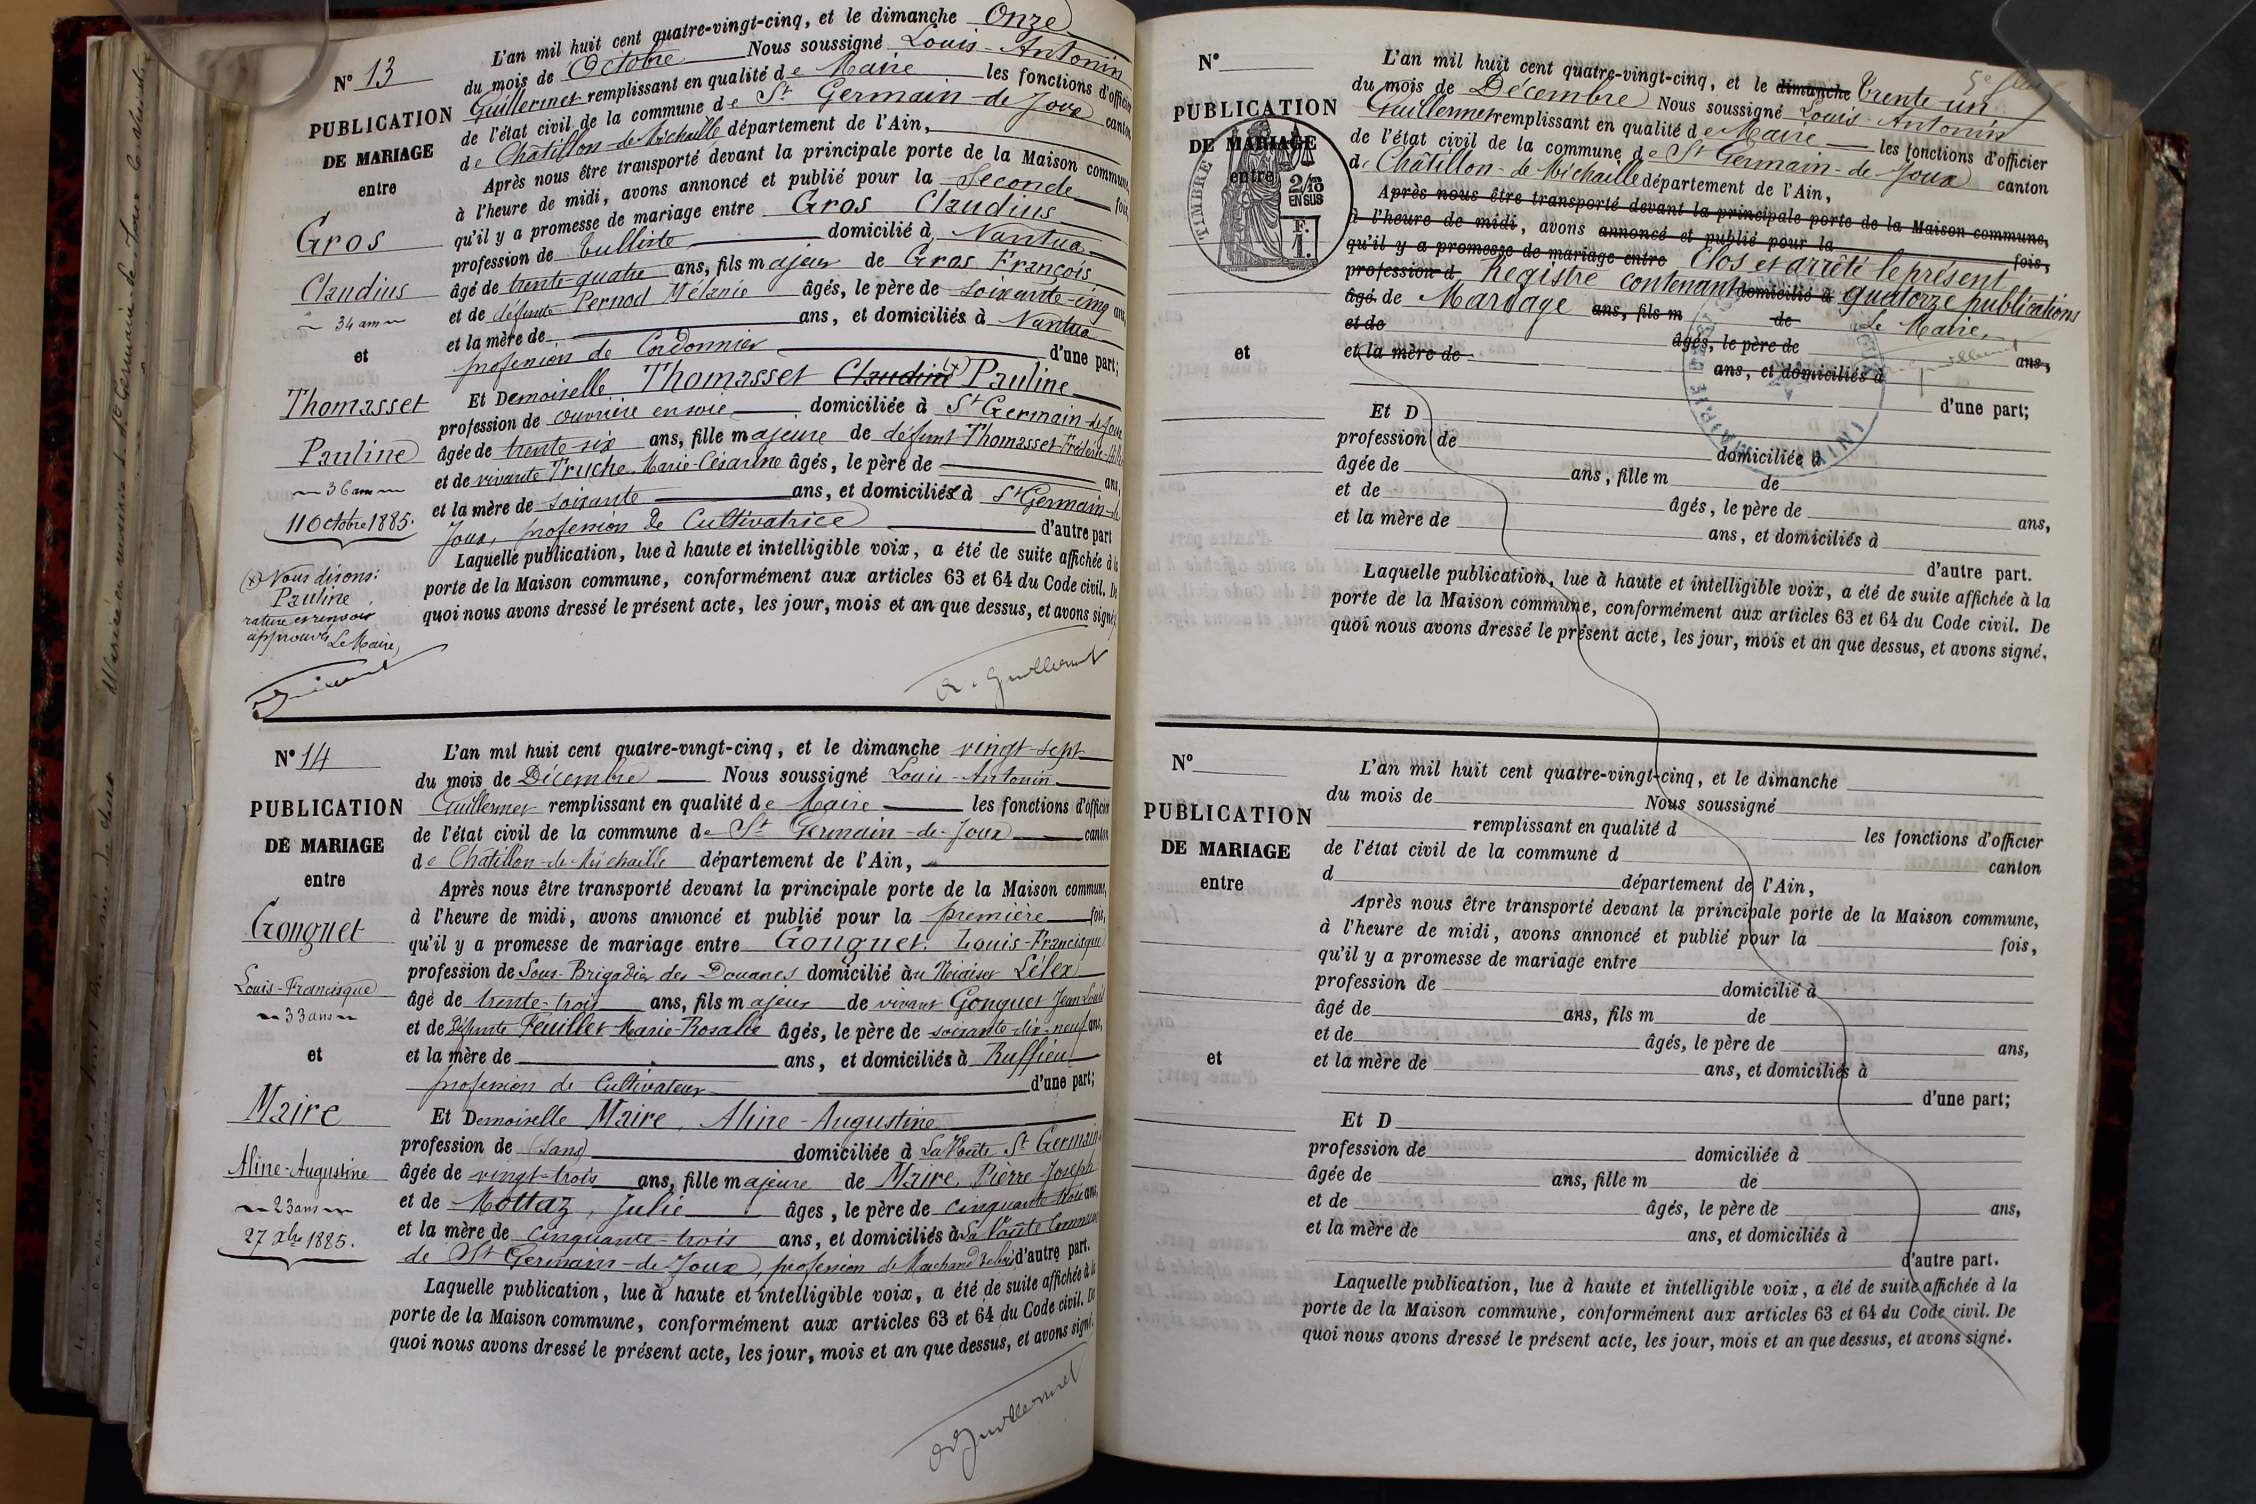 N° 13
PUBLICATION
DE MARIAGE
entre
Gros
Claudius
34 ans
et
Thomasset
Pauline
36 ans
11 Octobre 1885.
(x) Nous disons:
Pauline
rature et renvoi
approuvés Le Maire,
L'an mil huit cent quatre-vingt-cinq, et le dimanche Onze
du mois de Octobre Nous soussigné Louis-Antonin
Guillermet remplissant en qualité de Maire les fonctions d'officier
de l'état civil de la commune de St Germain-de-Joux canton
de Châtillon-de-Michaille département de l'Ain,
Après nous être transporté devant la principale porte de la Maison commune,
à l'heure de midi, avons annoncé et publié pour la Seconde fois,
qu'il y a promesse de mariage entre Gros Claudius
profession de tulliste domicilié à Nantua
âgé de trente-quatre ans, fils majeur de Gros François
et de défunte Pernod Mélanie âgés, le père de soixante-cinq ans,
et la mère de ans, et domiciliés à Nantua
profession de Cordonnier d'une part;
Et Demoiselle Thomasset Claudine (x) Pauline
profession de ouvrière en soie domiciliée à St Germain-de-Joux
âgée de trente-six ans, fille majeure de défunt Thomasset Frédéric
et de vivante Truche Marie-Césarine âgés, le père de ans,
et la mère de soixante ans, et domiciliés à St Germain-de-
Joux, profession de Cultivatrice d'autre part
Laquelle publication, lue à haute et intelligible voix, a été de suite affichée à la
porte de la Maison commune, conformément aux articles 63 et 64 du Code civil. De
quoi nous avons dressé le présent acte, les jour, mois et an que dessus, et avons signé.
A. Guillermet
N° 14
PUBLICATION
DE MARIAGE
entre
Gonguet
Louis-Francisque
33 ans
et
Maire
Aline-Augustine
23 ans
27 Xbre 1885.
L'an mil huit cent quatre-vingt-cinq, et le dimanche vingt-sept
du mois de Décembre Nous soussigné Louis-Antonin
Guillermet remplissant en qualité de Maire les fonctions d'officier
de l'état civil de la commune de St Germain-de-Joux canton
de Châtillon-de-Michaille département de l'Ain,
Après nous être transporté devant la principale porte de la Maison commune,
à l'heure de midi, avons annoncé et publié pour la première fois,
qu'il y a promesse de mariage entre Gonguet, Louis-Francisque
profession de Sous-Brigadier des Douanes domicilié à Lélex
âgé de trente-trois ans, fils majeur de vivant Gonguet Jean Louis
et de défunte Feuillet Marie-Rosalie âgés, le père de soixante-dix-neuf ans,
et la mère de ans, et domiciliés à Ruffieu
profession de Cultivateur d'une part;
Et Demoiselle Maire, Aline-Augustine
profession de (sans) domiciliée à La Voûte St Germain
âgée de vingt-trois ans, fille majeure de Maire, Pierre Joseph
et de Mottaz, Julie âges, le père de cinquante-trois ans,
et la mère de cinquante-trois ans, et domiciliés à La Voûte Commune
de St Germain-de-Joux, profession de Marchand de bois d'autre part.
Laquelle publication, lue à haute et intelligible voix, a été de suite affichée à la
porte de la Maison commune, conformément aux articles 63 et 64 du Code civil. De
quoi nous avons dressé le présent acte, les jour, mois et an que dessus, et avons signé.
A. Guillermet
N°
PUBLICATION
DE MARIAGE
entre
et
TIMBRE
2/10 EN SUS
F. 1.
L'an mil huit cent quatre-vingt-cinq, et le dimanche Trente-un
du mois de Décembre Nous soussigné Louis-Antonin
Guillermet remplissant en qualité de Maire les fonctions d'officier
de l'état civil de la commune de St Germain-de-Joux canton
de Châtillon-de-Michaille département de l'Ain,
Après nous être transporté devant la principale porte de la Maison commune,
à l'heure de midi, avons annoncé et publié pour la fois,
qu'il y a promesse de mariage entre Clos et arrêté le présent
profession d Registre contenant domicilié à quatorze publications
âgé de Mariage ans, fils m de Le Maire,
et de âgés, le père de ans,
et la mère de ans, et domiciliés à
d'une part;
Et D
profession de domiciliée à
âgée de ans, fille m de
et de âgés, le père de ans,
et la mère de ans, et domiciliés à
d'autre part.
Laquelle publication, lue à haute et intelligible voix, a été de suite affichée à la
porte de la Maison commune, conformément aux articles 63 et 64 du Code civil. De
quoi nous avons dressé le présent acte, les jour, mois et an que dessus, et avons signé.
N°
PUBLICATION
DE MARIAGE
entre
et
L'an mil huit cent quatre-vingt-cinq, et le dimanche
du mois de Nous soussigné
remplissant en qualité d les fonctions d'officier
de l'état civil de la commune d canton
d département de l'Ain,
Après nous être transporté devant la principale porte de la Maison commune,
à l'heure de midi, avons annoncé et publié pour la fois,
qu'il y a promesse de mariage entre
profession de domicilié à
âgé de ans, fils m de
et de âgés, le père de ans,
et la mère de ans, et domiciliés à
d'une part;
Et D
profession de domiciliée à
âgée de ans, fille m de
et de âgés, le père de ans,
et la mère de ans, et domiciliés à
d'autre part.
Laquelle publication, lue à haute et intelligible voix, a été de suite affichée à la
porte de la Maison commune, conformément aux articles 63 et 64 du Code civil. De
quoi nous avons dressé le présent acte, les jour, mois et an que dessus, et avons signé.